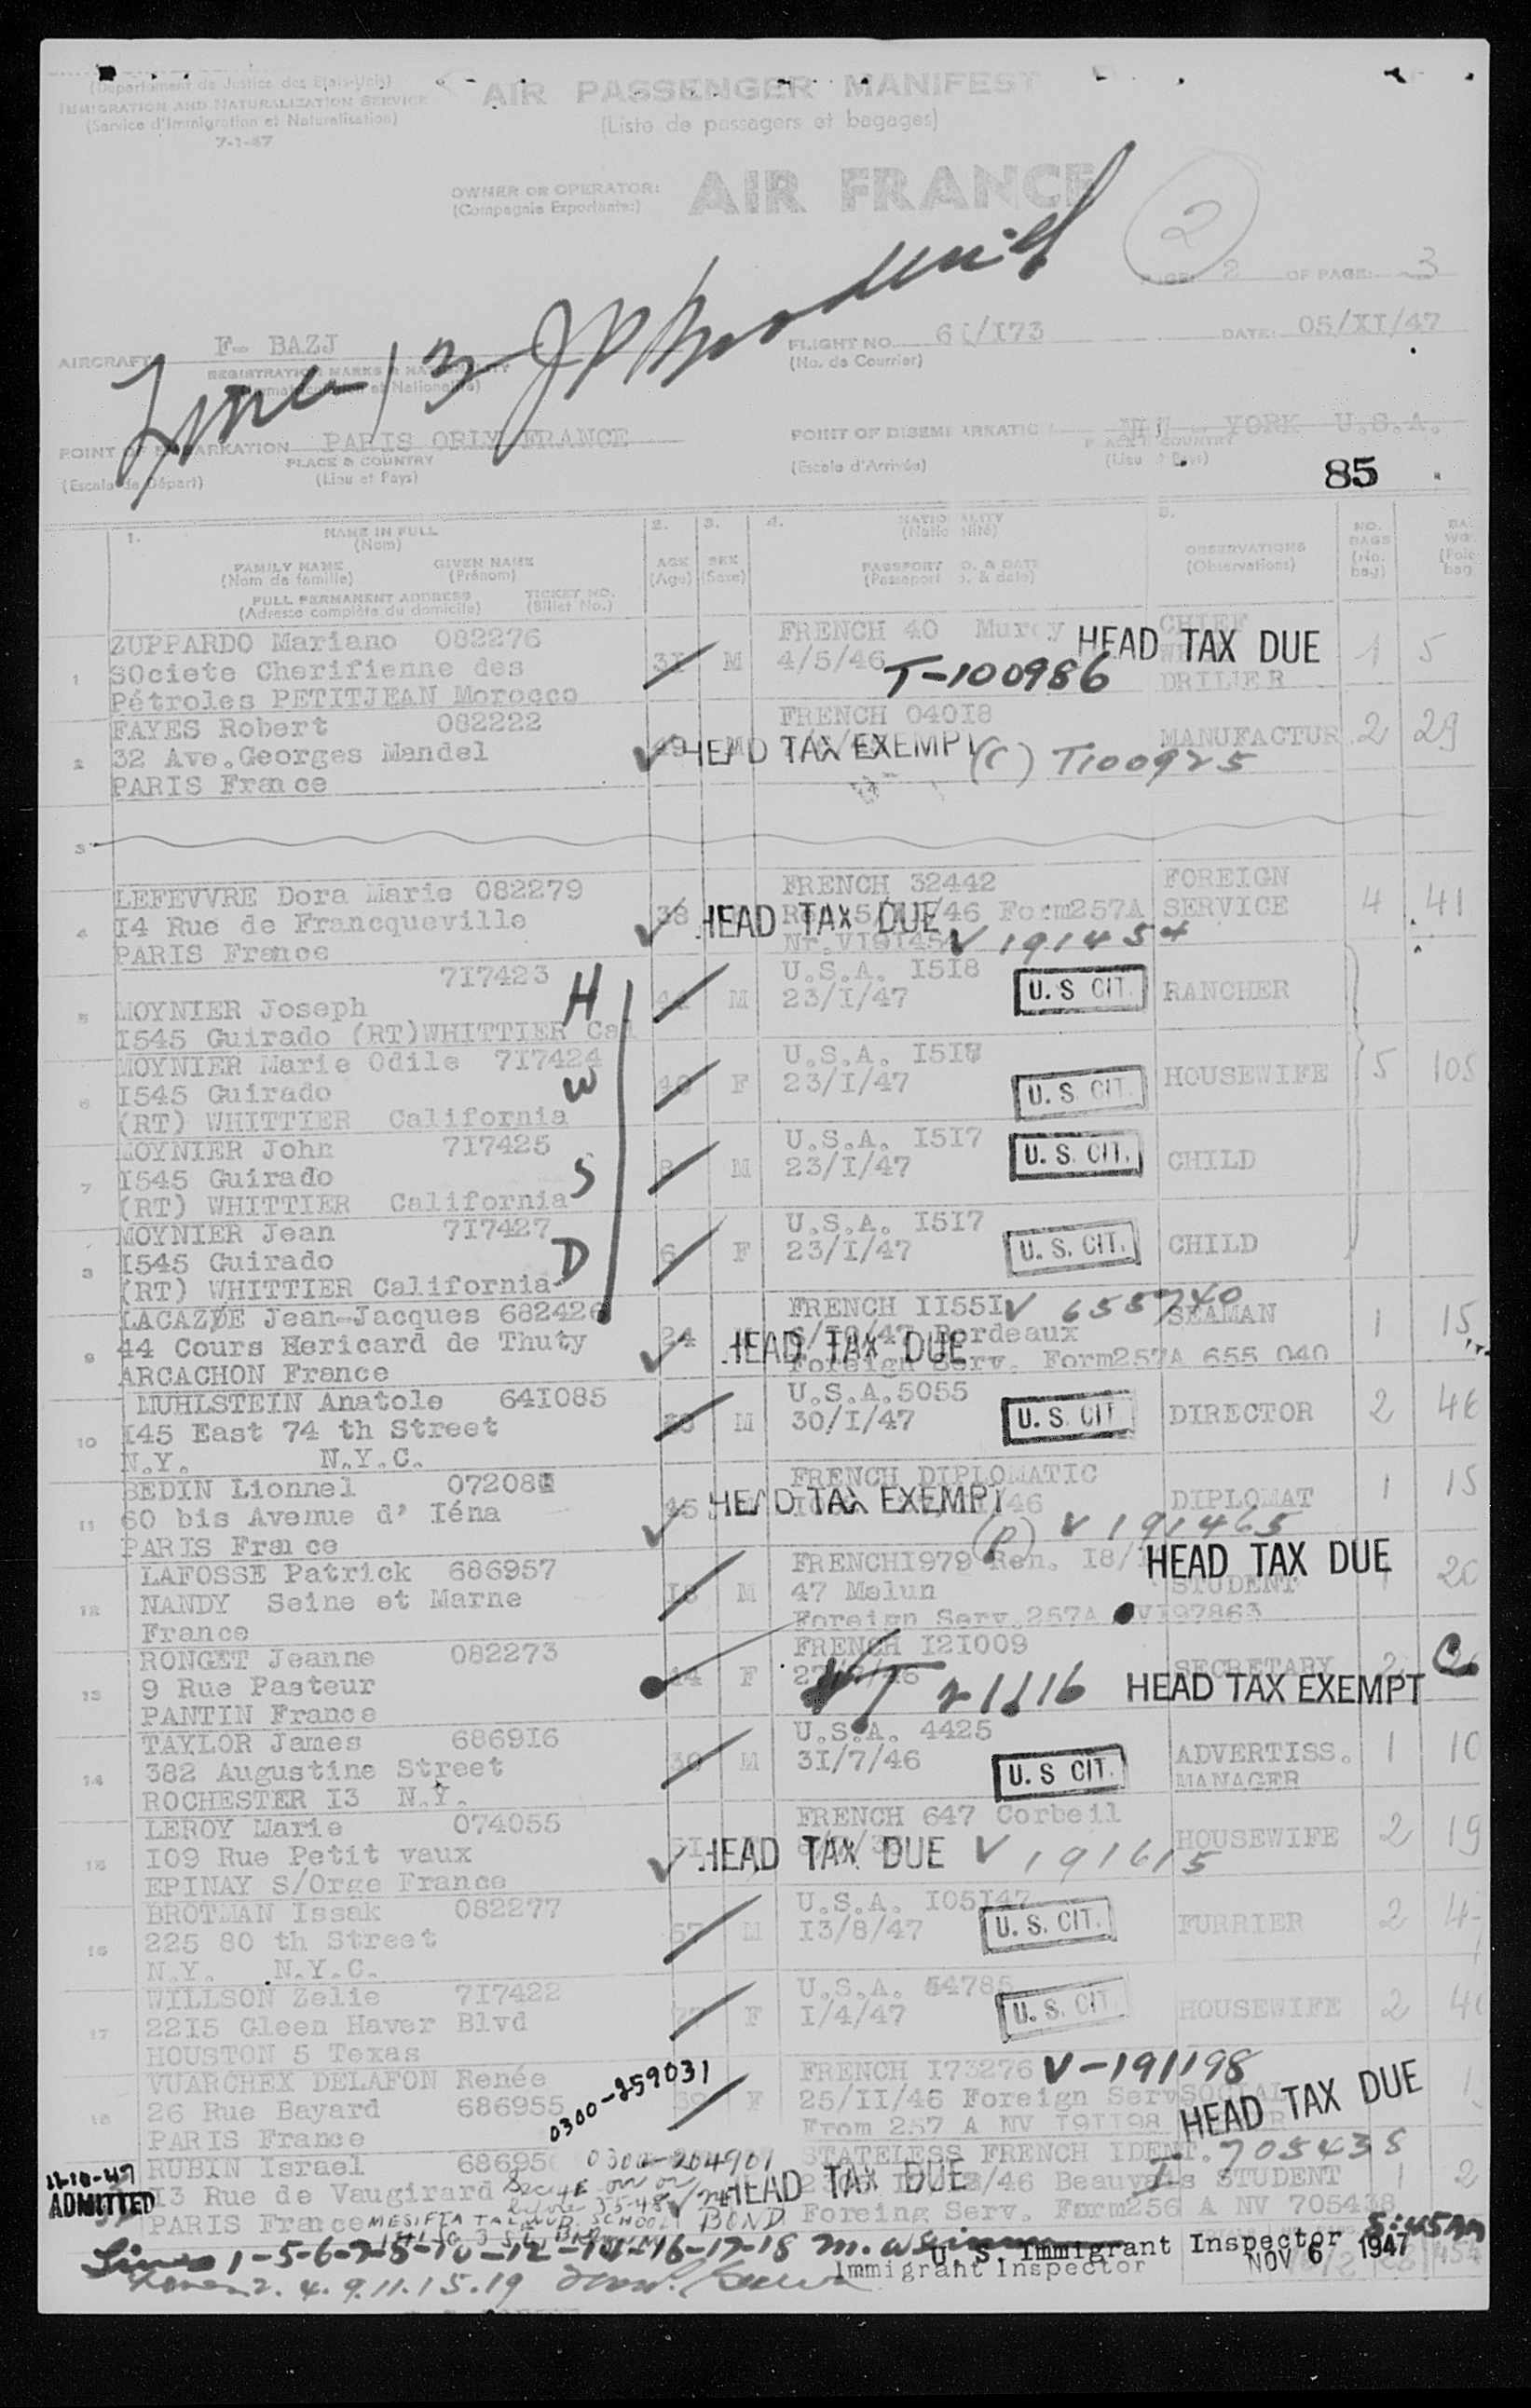 (Département de Justice des Etats-Unis)
IMMIGRATION AND NATURALIZATION SERVICE
(Service d'Immigration et Naturalisation)
7-1-47
AIR PASSENGER MANIFEST
(Liste de passagers et bagages)
OWNER OR OPERATOR:
(Compagnie Exportante:)
AIR FRANCE
2
PAGE: 2 OF PAGE: 3
AIRCRAFT F- BAZJ
REGISTRATION MARKS & NATIONALITY
FLIGHT NO. /I73
(No. de Courrier)
DATE: 05/XI/47
POINT OF EMBARKATION PARIS ORLY FRANCE
PLACE & COUNTRY
(Escale de Départ) (Lieu et Pays)
POINT OF DISEMBARKATION NEW - YORK U.S.A.
PLACE & COUNTRY
(Escale d'Arrivée) (Lieu et Pays)
85
1. NAME IN FULL 2. 3. 4. NATIONALITY 5. NO.
(Nom) (Nationalité) BAGS
FAMILY NAME GIVEN NAME AGE SEX PASSPORT NO. & DATE OBSERVATIONS (No.
(Nom de famille) (Prénom) (Age) (Sexe) (Passeport No. & date) (Observations) bag)
FULL PERMANENT ADDRESS TICKET NO.
(Adresse complète du domicile) (Billet No.)
ZUPPARDO Mariano 082276 FRENCH 40 CHIEF
1 SOciete Cherifienne des 3I M 4/5/46 HEAD TAX DUE 1 5
Pétroles PETITJEAN Morocco T-100986 DRILLER
FAYES Robert 082222 FRENCH 040I8
2 32 Ave.Georges Mandel HEAD TAX EXEMPT (C) T100925 MANUFACTUR 2 29
PARIS France
3
LEFEVVRE Dora Marie 082279 FRENCH 32442 FOREIGN
4 I4 Rue de Francqueville 38 HEAD TAX DUE /46 Form257A SERVICE 4 41
PARIS France V 191454
7I7423 U.S.A. I5I8
5 MOYNIER Joseph H 44 M 23/I/47 U. S CIT. RANCHER
I545 Guirado (RT)WHITTIER Cal
MOYNIER Marie Odile 7I7424 U.S.A.
6 I545 Guirado W 40 F 23/I/47 U. S. CIT. HOUSEWIFE 5 105
(RT) WHITTIER California
MOYNIER John 7I7425 U.S.A. I5I7
7 I545 Guirado S 8 M 23/I/47 U. S. CIT. CHILD
(RT) WHITTIER California
MOYNIER Jean 7I7427 U.S.A. I5I7
8 I545 Guirado D 6 F 23/I/47 U. S. CIT. CHILD
(RT) WHITTIER California
LACAZE Jean-Jacques 682426 FRENCH II55I V 655740 SEAMAN
9 44 Cours Hericard de Thuty 24 HEAD TAX DUE Bordeaux 1 15
ARCACHON France Foreign Serv. Form257A 655 040
MUHLSTEIN Anatole 64I085 U.S.A.5055
10 I45 East 74 th Street M 30/I/47 U. S. CIT DIRECTOR 2 46
N.Y. N.Y.C.
BEDIN Lionnel 07208 FRENCH DIPLOMATIC
11 60 bis Avenue d' Iéna 45 HEAD TAX EXEMPT /46 DIPLOMAT 1 15
PARIS France (P) V 191465
LAFOSSE Patrick 686957 FRENCHI979 Ren. I8/
12 NANDY Seine et Marne I8 M 47 Melun HEAD TAX DUE STUDENT 20
France Foreign Serv.257A VI97863
RONGET Jeanne 082273 FRENCH I2I009
13 9 Rue Pasteur 44 F HEAD TAX EXEMPT SECRETARY
PANTIN France
TAYLOR James 6869I6 U.S.A. 4425
14 382 Augustine Street 30 M 3I/7/46 U. S CIT. ADVERTISS. 1 10
ROCHESTER I3 N.Y. MANAGER
LEROY Marie 074055 FRENCH 647 Corbeil
15 I09 Rue Petit vaux HEAD TAX DUE V 191615 HOUSEWIFE 2 19
EPINAY S/Orge France
BROTMAN Issak 082277 U.S.A. I05I47
16 225 80 th Street 57 M I3/8/47 U. S. CIT. FURRIER 2
N.Y. N.Y.C.
WILLSON Zelie 7I7422 U.S.A. 54785
17 22I5 Gleen Haver Blvd F I/4/47 U. S. CIT. HOUSEWIFE 2
HOUSTON 5 Texas
VUARCHEX DELAFON Renée 0300-259031 FRENCH I73276 V-191198
18 26 Rue Bayard 686955 F 25/II/46 Foreign Serv SOCIAL
PARIS France From 257 A NV I9II98 HEAD TAX DUE
RUBIN Israel 68695 0300-204901 STATELESS FRENCH IDENT. 705435
11-10-47 I3 Rue de Vaugirard HEAD TAX DUE /46 Beauvais STUDENT 1 2
ADMITTED PARIS France BOND Foreing Serv. Form256 A NV 705438
MESIFTA TALMUD SCHOOL
Lines 1-5-6-7-8-10-12-14-16-17-18
U. S. Immigrant Inspector 8:45AM
2. 4. 9. 11. 15. 19
Immigrant Inspector NOV 6 1947